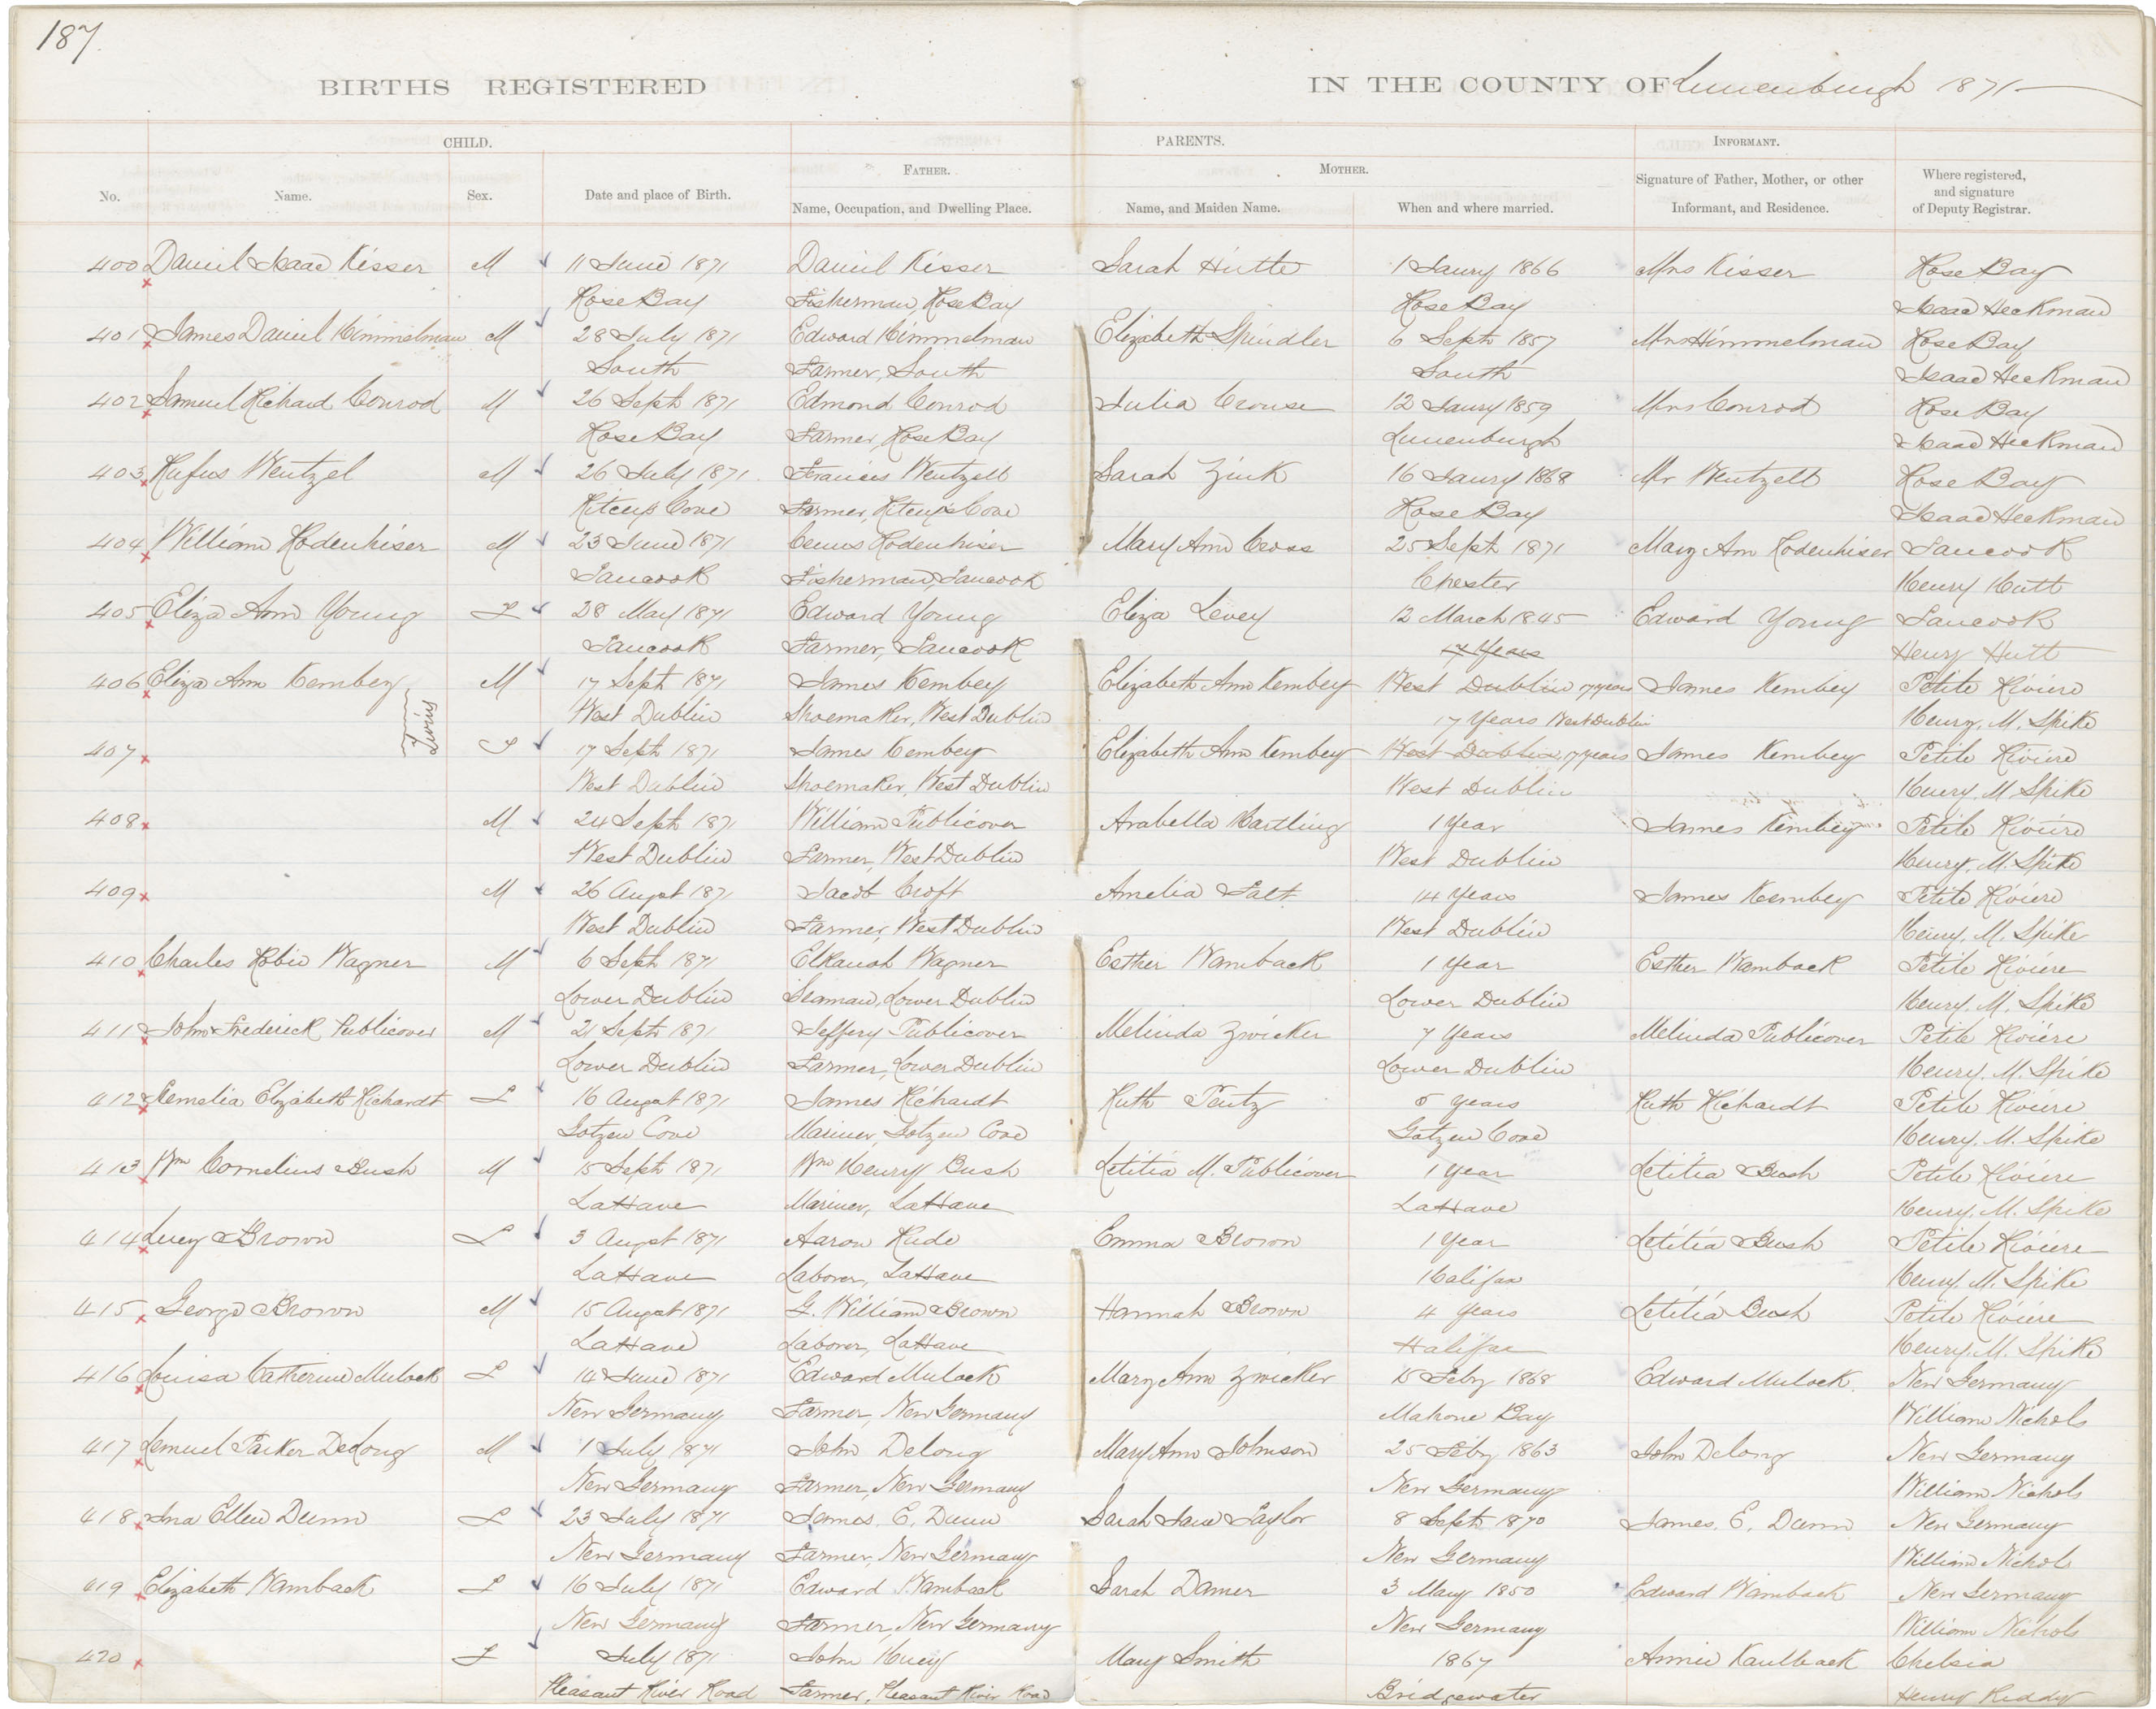 187.
BIRTHS REGISTERED IN THE COUNTY OF Lunenburgh 1871
CHILD. PARENTS. INFORMANT.
FATHER. MOTHER.
No. Name. Sex. Date and place of Birth. Name, Occupation, and Dwelling Place. Name, and Maiden Name. When and where married. Signature of Father, Mother, or other Informant, and Residence. Where registered, and signature of Deputy Registrar.
400 Daniel Isaac Kisser M 11 June 1871 Daniel Kisser Sarah Hirtle 1 Jaury 1866 Mrs Kisser Rose Bay
Rose Bay Fisherman, Rose Bay Rose Bay Isaac Heckman
401 James Daniel Himmelman M 28 July 1871 Edward Himmelman Elizabeth Spindler 6 Sept 1857 Mrs Himmelman Rose Bay
South Farmer, South South Isaac Heckman
402 Samuel Richard Conrod M 26 Sept 1871 Edmond Conrod Julia Crouse 12 Jaury 1859 Mrs Conrod Rose Bay
Rose Bay Farmer, Rose Bay Lunenburgh Isaac Heckman
403 Rufus Wentzel M 26 July 1871 Francis Wentzell Sarah Zink 16 Jaury 1868 Mr Wentzell Rose Bay
Ritcey's Cove Farmer, Ritcey's Cove Rose Bay Isaac Heckman
404 William Rodenhiser M 23 June 1871 Rodenhiser Mary Ann Cross 25 Sept 1871 Mary Ann Rodenhiser Tancook
Tancook Fisherman, Tancook Chester Henry Hutt
405 Eliza Ann Young F 28 May 1871 Edward Young Eliza Levey 12 March 1845 Edward Young Tancook
Tancook Farmer, Tancook 17 Years Henry Hutt
406 Eliza Ann Kembey M 17 Sept 1871 James Kembey Elizabeth Ann Kembey West Dublin 17 years James Kembey Petite Riviere
Twins West Dublin Shoemaker, West Dublin 17 Years West Dublin Henry. M. Spike
407 F 17 Sept 1871 James Kembey Elizabeth Ann Kembey West Dublin 17 years James Kembey Petite Riviere
West Dublin Shoemaker, West Dublin West Dublin Henry. M Spike
408 M 24 Sept 1871 William Publicover Arabella Bartling 1 Year James Kembey Petite Riviere
West Dublin Farmer, West Dublin West Dublin Henry. M. Spike
409 M 26 August 1871 Jacob Croft Amelia Falt 14 Years James Kembey Petite Riviere
West Dublin Farmer, West Dublin West Dublin Henry. M. Spike
410 Charles Robie Wagner M 6 Sept 1871 Elkanah Wagner Esther Wamback 1 Year Esther Wamback Petite Riviere
Lower Dublin Seaman, Lower Dublin Lower Dublin Henry. M. Spike
411 John Frederick Publicover M 21 Sept 1871 Jeffery Publicover Melinda Zwicker 7 Years Melinda Publicover Petite Riviere
Lower Dublin Farmer, Lower Dublin Lower Dublin Henry. M. Spike
412 Elizabeth Richardt F 16 August 1871 James Richardt Ruth Teutz 5 years Ruth Richardt Petite Riviere
Gotzen Cove Mariner, Gotzen Cove Gotzen Cove Henry. M. Spike
413 Wm Cornelius Bush M 15 Sept 1871 Wm Henry Bush Letitia M. Publicover 1 Year Letitia Bush Petite Riviere
LaHave Mariner, LaHave LaHave Henry. M. Spike
414 Lucy Brown F 3 August 1871 Aaron Rude Emma Brown 1 Year Letitia Bush Petite Riviere
LaHave Laborer, LaHave Halifax Henry. M. Spike
415 George Brown M 15 August 1871 G. William Brown Hannah Brown 4 Years Letitia Bush Petite Riviere
LaHave Laborer, LaHave Halifax Henry. M. Spike
416 Louisa Catherine Mulock F 14 June 1871 Edward Mulock Mary Ann Zwicker 15 Feby 1868 Edward Mulock. New Germany
New Germany Farmer, New Germany Mahone Bay William Nichols
417 Lemuel Parker DeLong M 1 July 1871 John Delong Mary Ann Johnson 25 Feby 1863 John Delong New Germany
New Germany Farmer, New Germany New Germany William Nichols
418 Ina Ellen Dunn F 23 July 1871 James. E. Dunn Sarah Jane Taylor 8 Sept 1870 James. E. Dunn New Germany
New Germany Farmer, New Germany New Germany William Nichols
419 Elizabeth Wamback F 16 July 1871 Edward Wamback Sarah Damer 3 May 1850 Edward Wamback New Germany
New Germany Farmer, New Germany New Germany William Nichols
420 F July 1871 John Huey Mary Smith 1867 Annie Kaulback Chelsia
Pleasant River Road Farmer, Pleasant River Road Bridgewater Henry